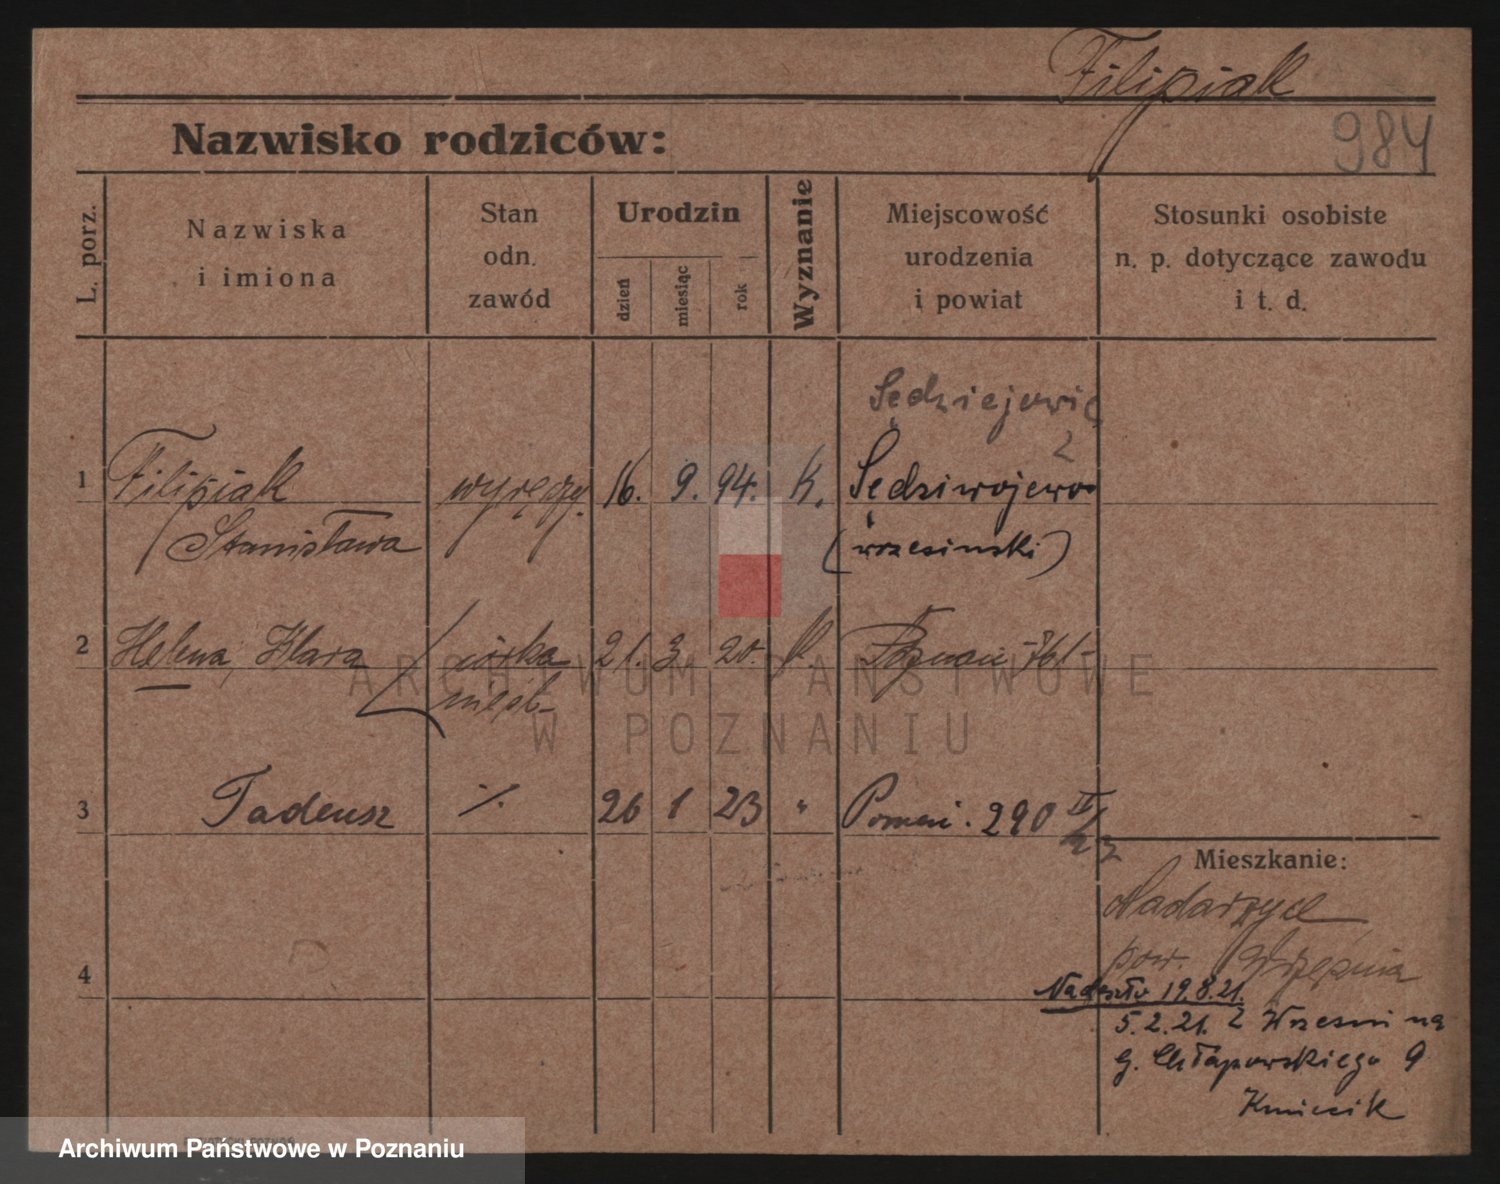 Filipiak
984
Nazwisko rodziców:
L. porz.
Nazwiska
i imiona
Stan
odn.
zawód
Urodzin
dzień
miesiąc
rok
Wyznanie
Miejscowość
urodzenia
i powiat
Stosunki osobiste
n. p. dotyczące zawodu
i t. d.
Sędziejowic
1 Filipiak 16. 9. 94. K. Sędziwojewo
Stanisława (wrzesinski)
2 Helena, Klara córka 21. 3. 20. K. Poznań
nieśl.
3 Tadeusz ·/. 26 1 23 " 290 IV/23
Mieszkanie:
pow. Września
4
Nadeszło 19.8.21.
5.2.21. z Wrześni na
g. Chłapowskiego 9
Kmiecik
ARCHIWUM PAŃSTWOWE
W POZNANIU
Archiwum Państwowe w Poznaniu